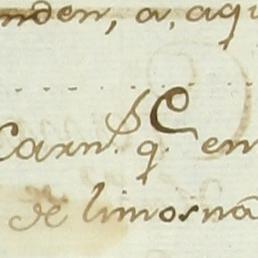 nden, a, aqu
Carn. q. en
de limosna